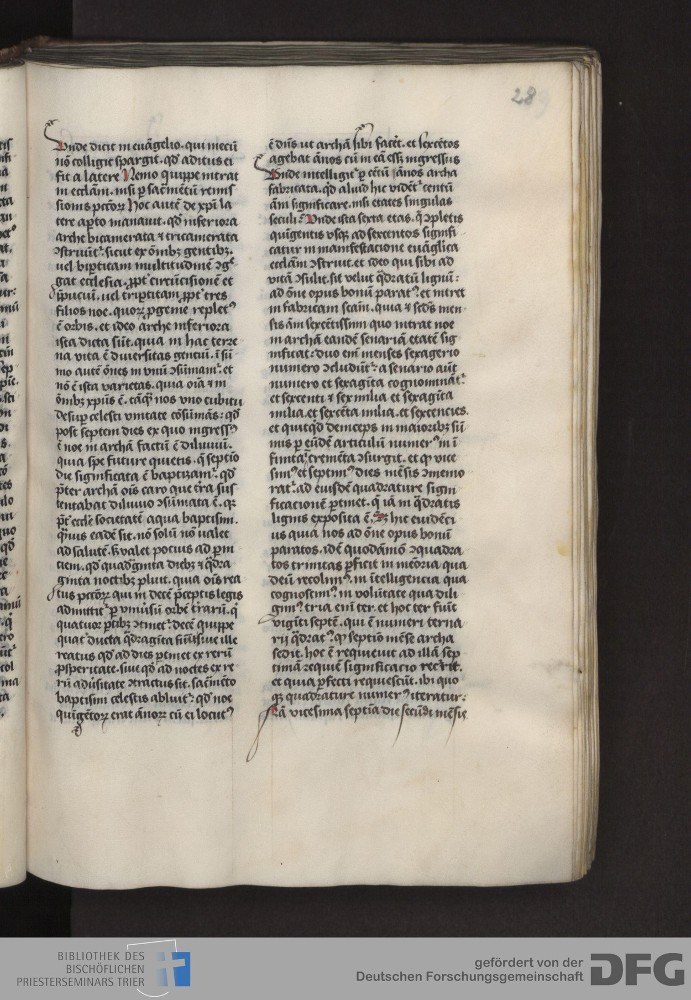 28
Vnde dicit in euāgelio. qui mecū
nō colligit spargit. qd' aditus ei
fit a latere Nemo quippe intrat
in eccl̄am. nisi p sacm̄tū remis
sionis pctōꝝ Hoc autē de xp̄i la
tere aperto manauit. qd' inferiora
arche bicamerata ⁊ tricamerata
ꝯstruūt². sicut ex ōnibꝫ gentibꝫ.
uel bip̄titam multitudinē ꝯgͤ
gat ecclesia. ꝓpt' circūcisionē et
p̄puciū. uel tripertitam ꝓpt' tres
filios noe. quoꝝ ꝓgenie replet⁹
ē orbis. et ideo arche inferiora
ista dicta sūt. quia in hac terre
na vita ē diuersitas genciū. ī sū
mo autē ōnes in vnū ꝯsūmam². et
nō ē ista varietas. quia oīa ⁊ in
ōnibꝫ xpūs ē. tāqͣ nos vno cubitu
desup celesti vnitate cōsūmās: qd'
post septem dies ex quo ingress⁹
ē noe in archā factū ē diluuiū.
quia spe future quietis. q̄ septīo
die significata ē baptizam². qd'
p̄ter archā oīs caro que t̄ra sus
tentabat diluuio ꝯsūmata ē. qꝛ
p̄t' eccl̄ie societatē aqua baptismi.
q̄uis eadē sit. nō solū nō ualet
ad salutē. sꝫ valet pocius ad p̄ni
ciem. qd' quadͣginta diebꝫ ⁊ q̄dra
ginta noctibꝫ pluit. quia oīs rea
tus pctōꝝ qui in decē p̄ceptis legis
admittit² p vniūsū orbē t̄rarū. q̄
quatuor p̄tibꝫ ꝯtinet². decē quippe
quat' ducta q̄dragīta fiūt siue ille
reatus qd' ad dies p̄tinet ex rerū
ꝓsperitate. siue qd' ad noctes ex re
rū aduūsitate ꝯtractus sit. sacm̄to
baptismi celestis abluit². qd' noe
quīgētoꝝ erat ānoꝝ cū ei locut⁹
ē dn̄s ut archā sibi facēt. et sexcētos
agebat ānos cū in eā ess; ingressus
Vnde intelligit² p cētū ānos archa
fabricata. qd' aliud hic vidēt² centū
ām significare. nisi etates singulas
seculi: Vnde ista sexta etas. q̄ ꝯpletis
quīgentis vsqꝫ ad sexcentos signifi
catur in manifestacione euāglica
eccl̄iam ꝯstruit. et ideo qui sibi ad
vitā ꝯsulit. sit velut q̄dratū lignū:
ad ōne opus bonū parat⁹. et intret
in fabricam sc̄am. quia ⁊ sc̄ds men
sis ān sexcētissimi quo intrat noe
in archā eandē senariā etatē sig
nificat: duo enī menses sexagerio
numero ꝯcludūt²: a senario aūt
numero et sexagīta cognominat².
et sexcenti ⁊ sex milia et sexagīta
milia. et sexcēta milia. et sexcencies.
et quitqd' deinceps in maioribꝫ sū
mis p eūdē articulū numer⁹ in ī
finita īcremēta ꝯsurgit. et qͥ vice
sim⁹ et septim⁹ dies mēsis ꝯmemo
rat². ad eiusdē quadrature signi
ficationē p̄tinet. q̄ iā in q̄dratis
lignis exposita ē. Sꝫ hic euidēci
us quia nos ad ōne opus bonū
paratos. idē quodāmō ꝯquadra
tos trinitas ꝑficit in mēoria qua
deū recolim⁹. in ītelligencia qua
cognoscim⁹. in volūtate qua dili
gim⁹. tria enī ter. et hoc ter fiūt
vigīti septē. qui ē numeri terna
rij q̄drat⁹. qͥ septīo mēse archa
sedit. hoc ē requieuit ad illā sep
timā requiē significacio recurrit.
et quia ꝑfecti requiescūt. ibi quo
qꝫ quadrature numer⁹ iteratur:
Nā vicesima septīa die secūdi mēsis
BIBLIOTHEK DES
BISCHÖFLICHEN
PRIESTERSEMINARS TRIER
gefördert von der
Deutschen Forschungsgemeinschaft
DFG